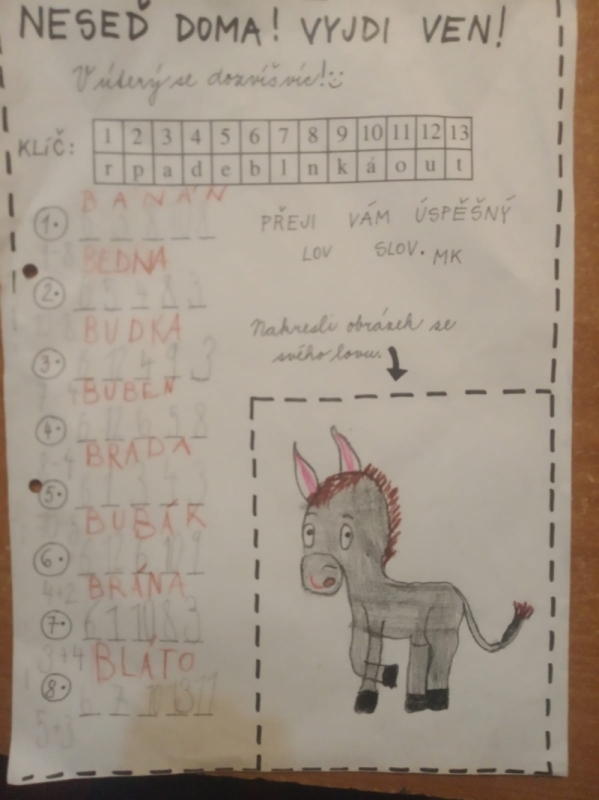 NESEĎ DOMA! VYJDI VEN!
V úterý se dozvíš víc!
KLÍČ:
1 2 3 4 5 6 7 8 9 10 11 12 13
r p a d e b l n k á o u t
BANÁN
1.
PŘEJI VÁM ÚSPĚŠNÝ
LOV SLOV. MK
BEDNA
2.
BUDKA
3. 6 12 4 9 3
Nakresli obrázek se
svého lovu.
BUBEN
4. 6 12 6 5 8
BRADA
5. 6 1 3 4 3
BUBÁK
6. 6 12 6 10 9
4+2
BRÁNA
7. 6 1 10 8 3
3+4
BLÁTO
8. 6 7 10 13 11
5+3